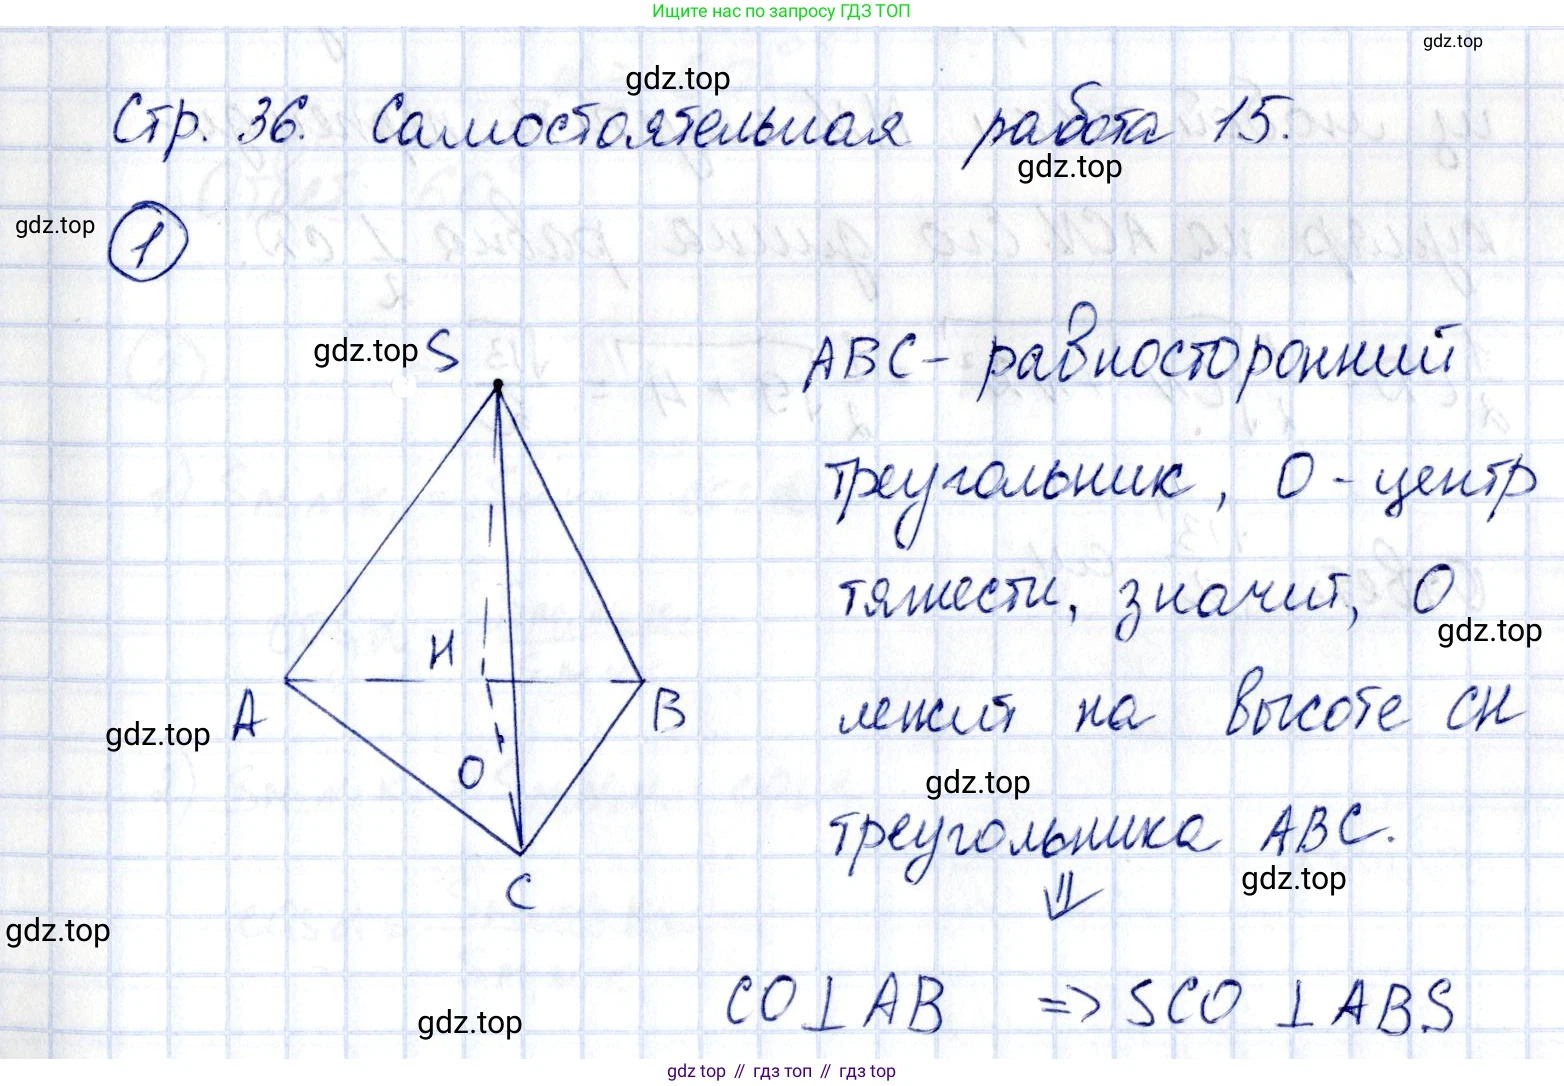 Ищите нас по запросу ГДЗ ТОП
gdz.top
gdz.top
Стр. 36. Самостоятельная работа 15.
gdz.top
gdz.top
1
gdz.top
S
ABC - равносторонний
треугольник, O - центр
тяжести, значит, O
gdz.top
H
A
B
лежит на высоте CH
gdz.top
O
gdz.top
треугольника ABC.
gdz.top
C
⇓
gdz.top
CO⊥AB => SCO ⊥ ABS
gdz.top
gdz.top // гдз топ // гдз top